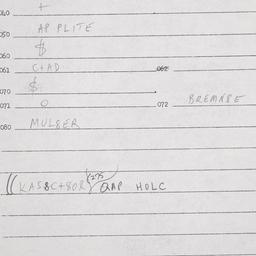 040 +
050 AP PLITE
060 $
061 C+AD 062
070 $
071 O 072 BREMNBE
080 MUL8ER
((KAS8C+8OR) QAP HOLC